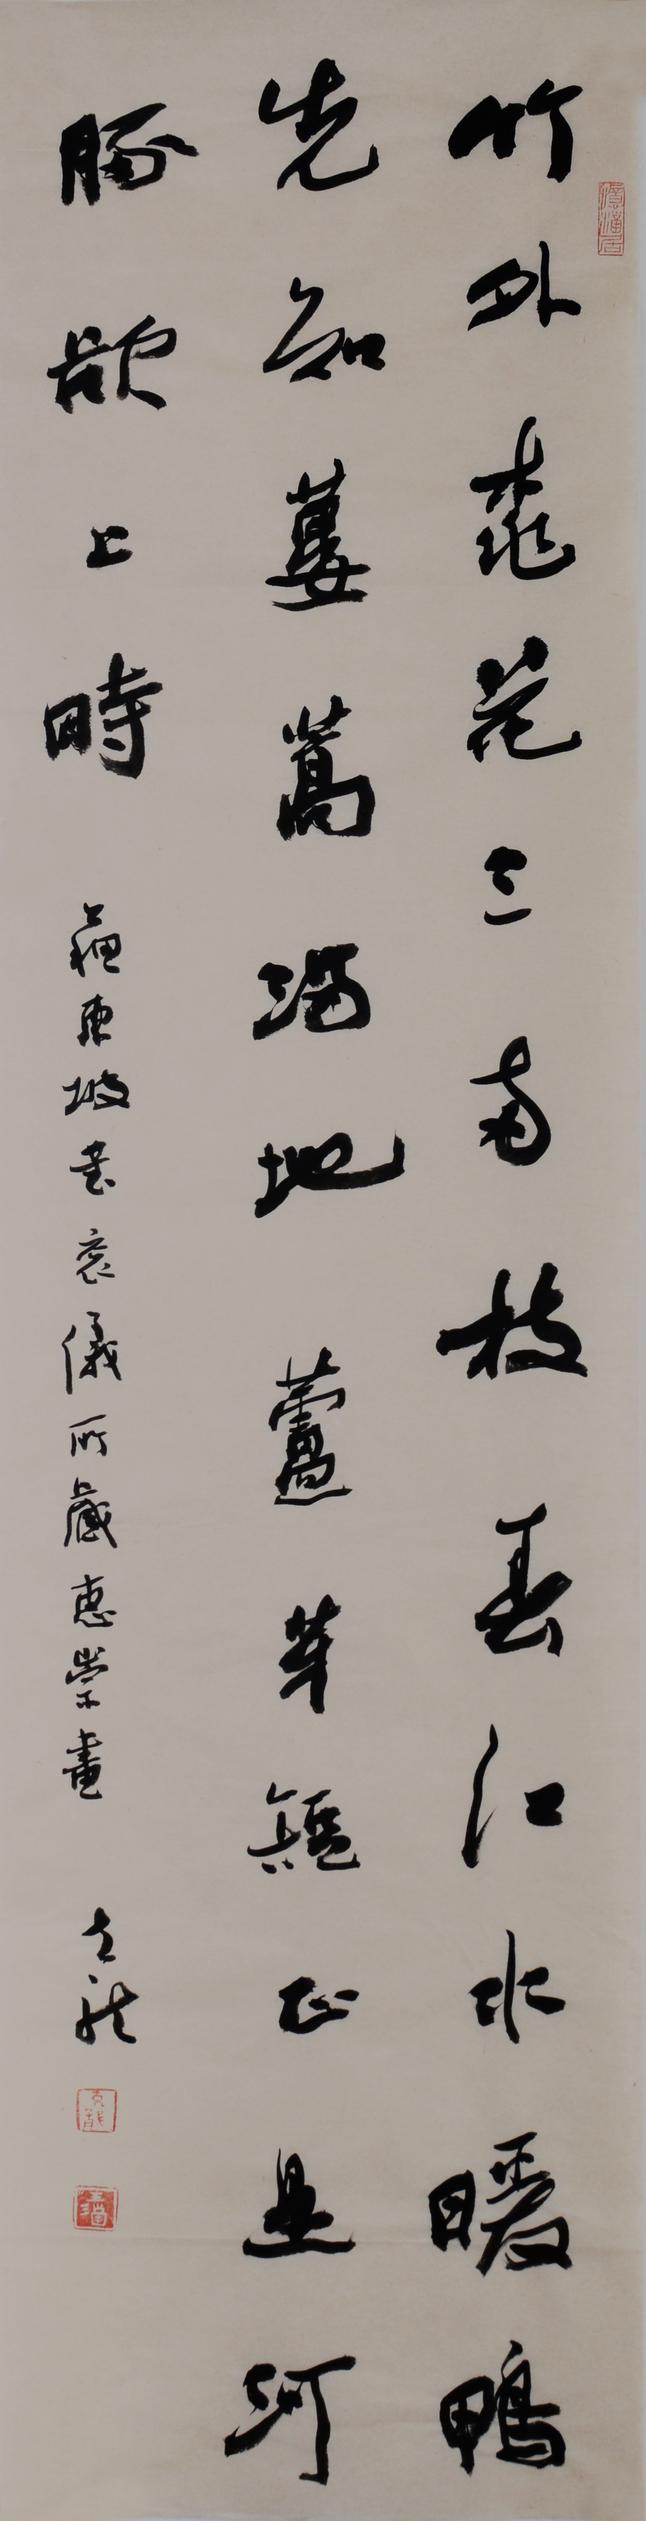 竹外桃花三兩枝春江水暖鴨
先知蔞蒿滿地蘆芽短正是河
豚欲上時
蘇東坡書袞儀所藏惠崇畫